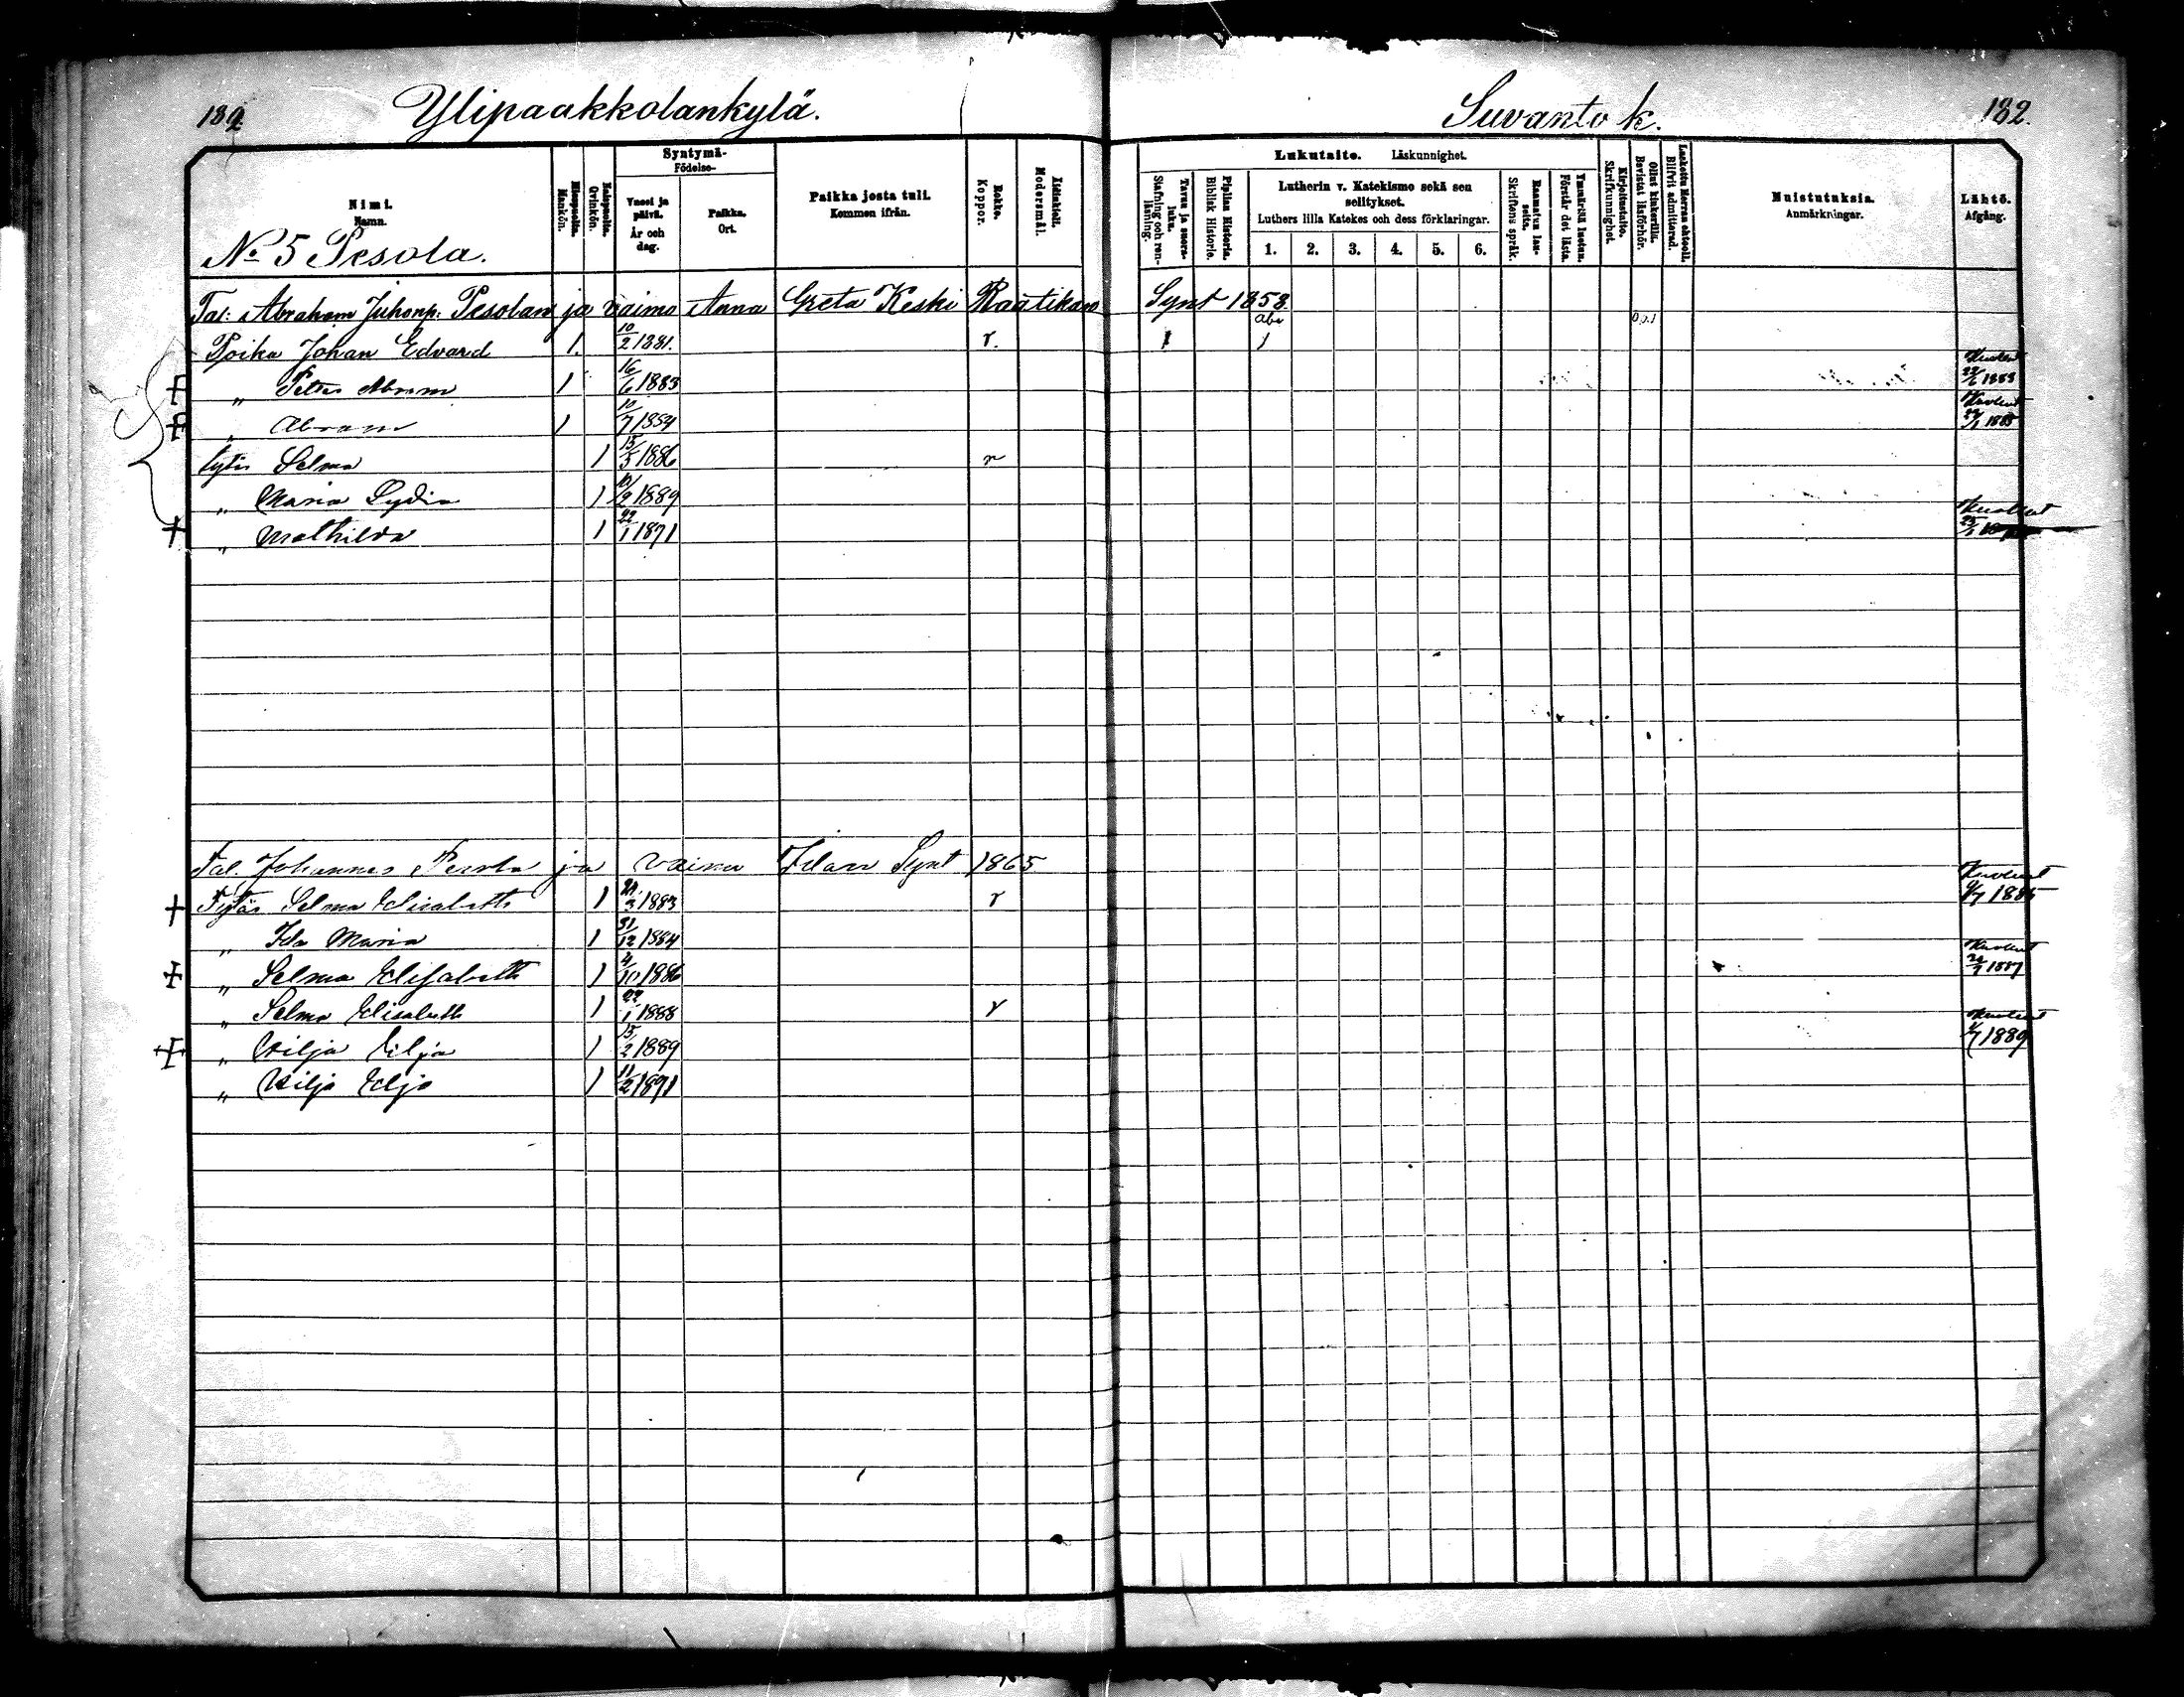 182 Ylipaakkolankylä. Suvanto k. 182.
Nimi. Namn.
Miespuolia. Mankön.
Naispuolia. Qvinkön.
Syntymä- Födelse-
Vuosi ja päivä. År och dag.
Paikka. Ort.
Paikka josta tuli. Kommen ifrån.
Rokko. Koppor.
Äidinkieli. Modersmål.
Lukutaito. Läskunnighet.
Tavuu ja suora- luku. Stafning och ren- läsning.
Piplian Historia. Biblisk Historie.
Lutherin v. Katekismo sekä sen selitykset.
Luthers lilla Katekes och dess förklaringar.
1. 2. 3. 4. 5. 6.
Raamatun lau- seita. Skriftens språk.
Ymmärtää luetun. Förstår det lästa.
Kirjoitustaito. Skrifkunnighet.
Ollut kinkerillä. Bevistat läsförhör.
Laskettu Herran ehtooll. Blifvit admitterad.
Muistutuksia. Anmärkningar.
Lähtö. Afgång.
No 5 Pesola.
Tal: Abraham Juhonp: Pesolan ja vaimo Anna Greta Keski Raatikan Synt 1858.
Poika Johan Edvard 1. 10/2 1881. r. 1 abc 1
" Petter Abram 1 16/6 1883 Kuollut 1883
" Abram 1 10/7 1884 Kuollut 1885
tytär Selma 1 15/5 1886 r
" Maria Lydia 1 10/2 1889
" Mathilda 1 22/1 1871 Kuollut
Tal. Johannes Pesola ja vaimo Idan Synt 1865
Tytär Selma Elisabeth 1 24/3 1883 r Kuollut 1885
" Ida Maria 1 31/12 1884
" Selma Elisabeth 1 4/10 1886 Kuollut 1887
" Selma Elisabeth 1 22/1 1888 r
" Hilja Eilja 1 15/2 1889 Kuollut 1889
" Hilja Elja 1 11/2 1891